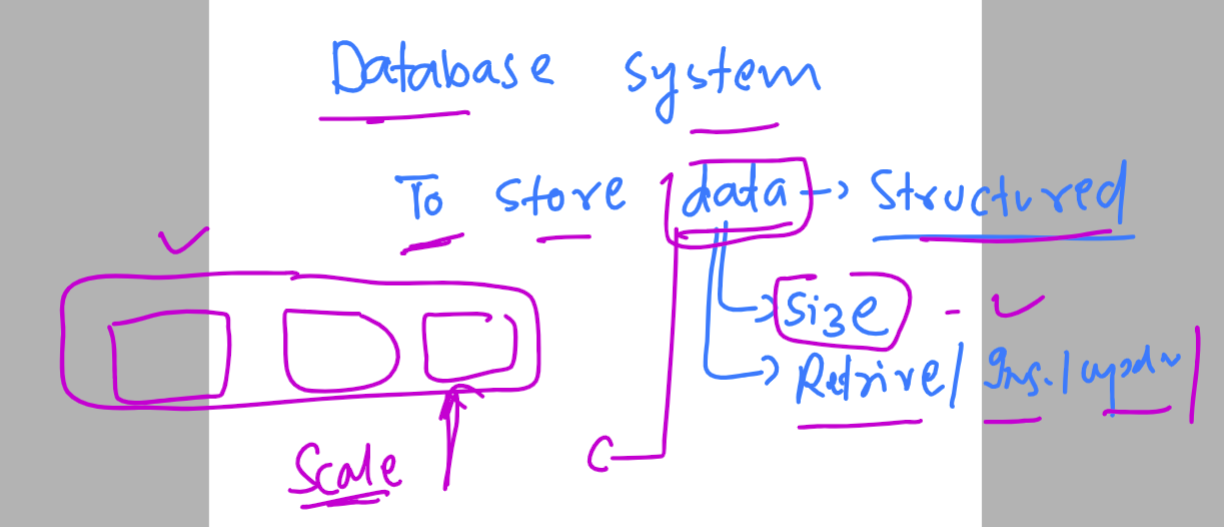 Database system
To store data → Structured
→ Size - ✓
→ Retrive / Ins. / upda
Scale
C